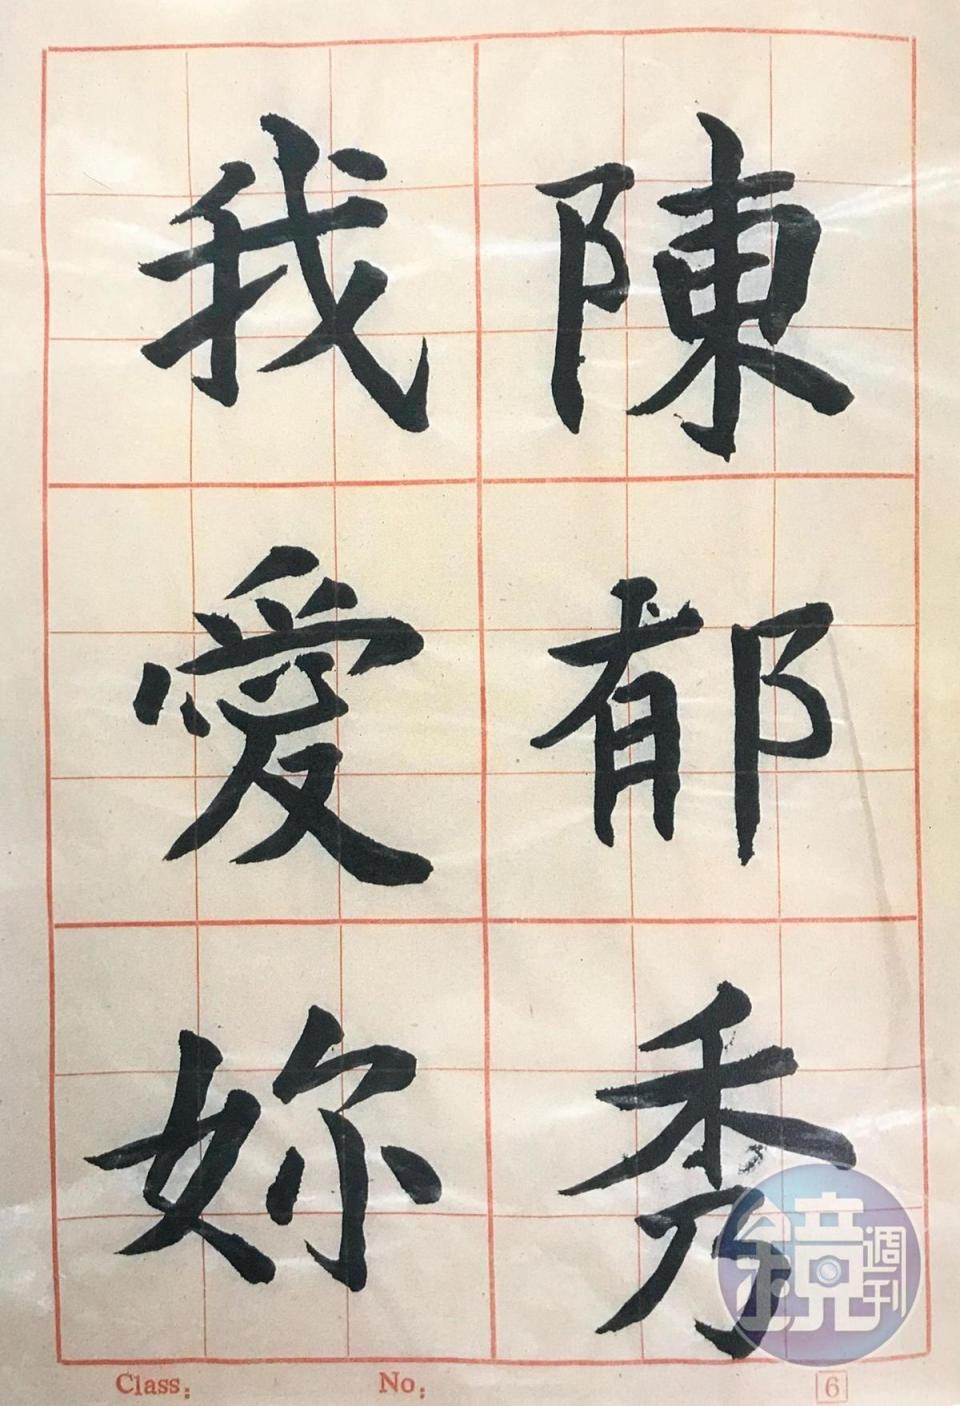 陳郁秀
我愛妳
Class:
No:
6
鏡週刊